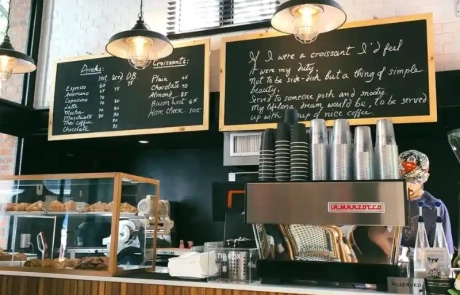 Drinks:
Hot Iced DB
Espresso
Americano
Cappuccino
Latte
Mocha
Macchiato
Thai coffee
Chocolate
Croissants:
Plain
Chocolate
Almond
Ham Cheese 105
If I were a croissant I'd feel
it were my duty,
Not to be side-dish but a thing of simple
beauty,
Served to someone posh and snooty
my lifelong dream would be, to be served
up with a cup of nice coffee
LA MARZOCCO
RESERVED